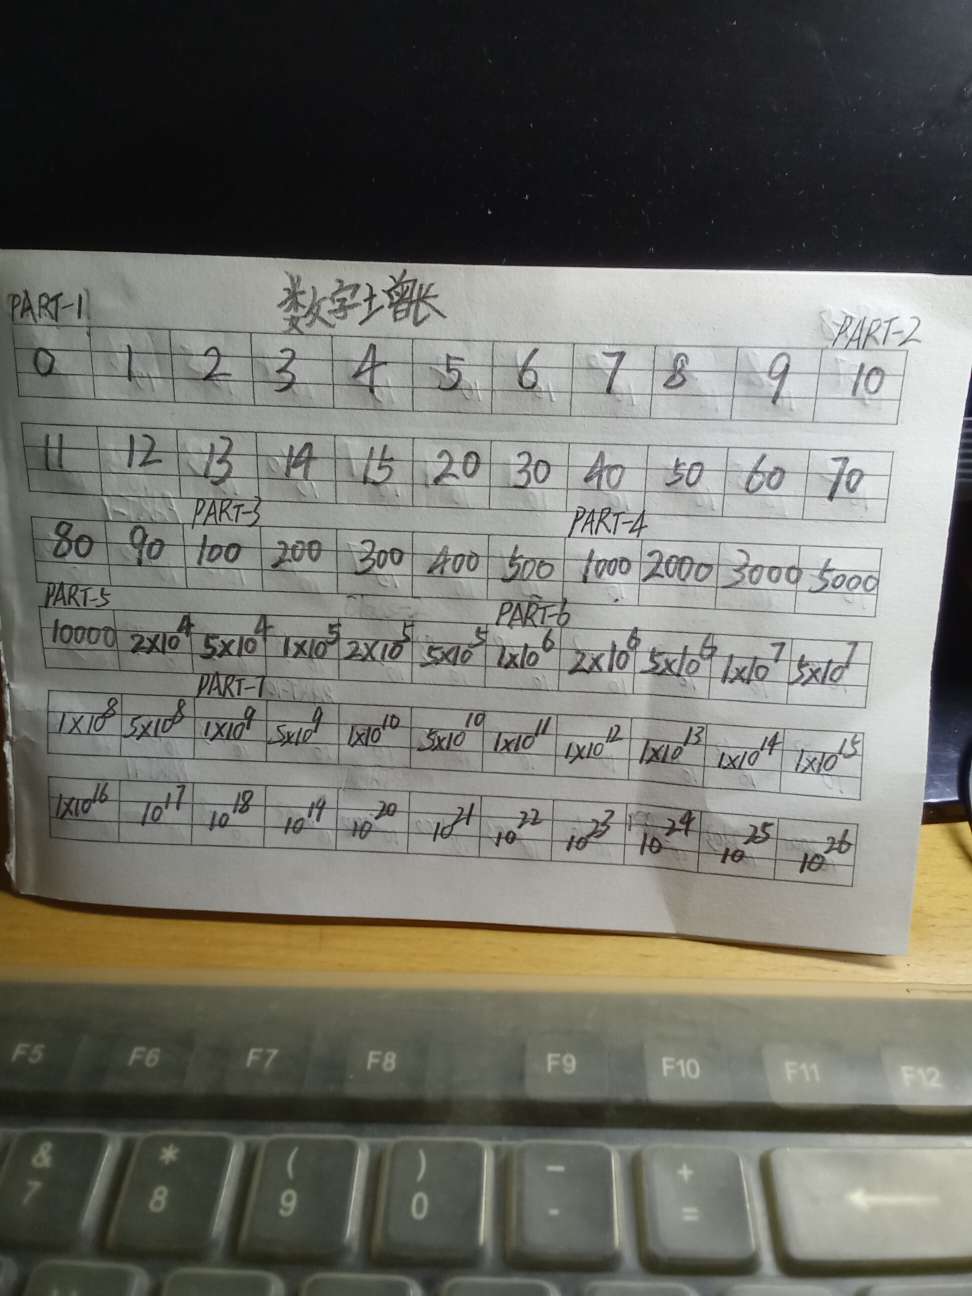 PART-1 数字增长 PART-2
0 1 2 3 4 5 6 7 8 9 10
11 12 13 14 15 20 30 40 50 60 70
PART-3 PART-4
80 90 100 200 300 400 500 1000 2000 3000 5000
PART-5 PART-6
10000 2×10⁴ 5×10⁴ 1×10⁵ 2×10⁵ 5×10⁵ 1×10⁶ 2×10⁶ 5×10⁶ 1×10⁷ 5×10⁷
PART-7
1×10⁸ 5×10⁸ 1×10⁹ 5×10⁹ 1×10¹⁰ 5×10¹⁰ 1×10¹¹ 1×10¹² 1×10¹³ 1×10¹⁴ 1×10¹⁵
1×10¹⁶ 10¹⁷ 10¹⁸ 10¹⁹ 10²⁰ 10²¹ 10²² 10²³ 10²⁴ 10²⁵ 10²⁶
F5 F6 F7 F8 F9 F10 F11 F12
& * ( ) – +
7 8 9 0 - = ←